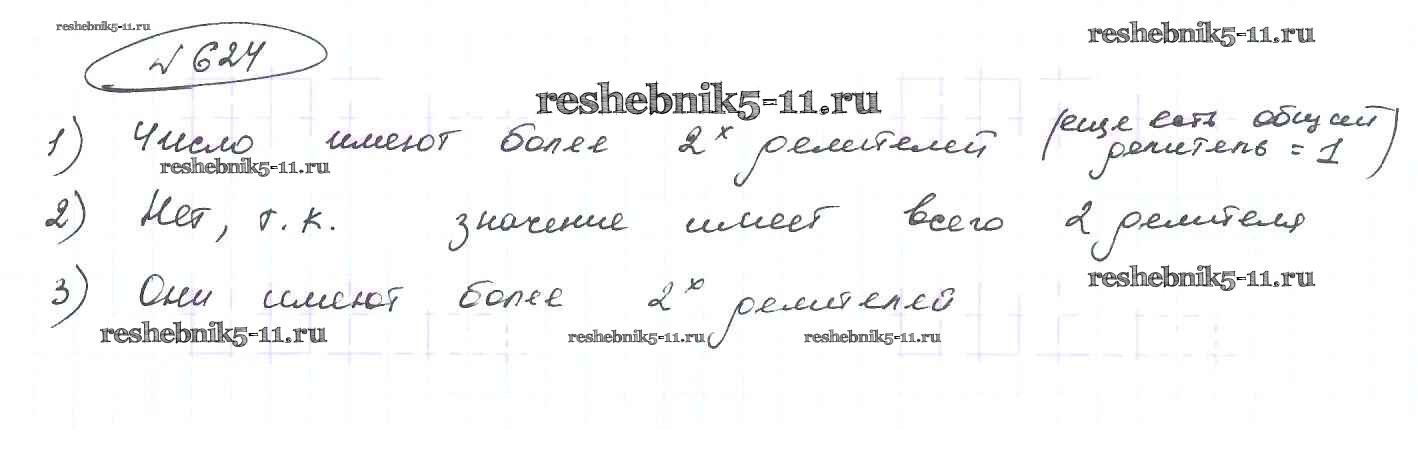 reshebnik5-11.ru
reshebnik5-11.ru
№624
reshebnik5-11.ru
1) Число имеют более 2х делителей (еще есть общий делитель = 1)
reshebnik5-11.ru
2) Нет, т.к. значение имеет всего 2 делителя
reshebnik5-11.ru
3) Они имеют более 2х делителей
reshebnik5-11.ru
reshebnik5-11.ru
reshebnik5-11.ru